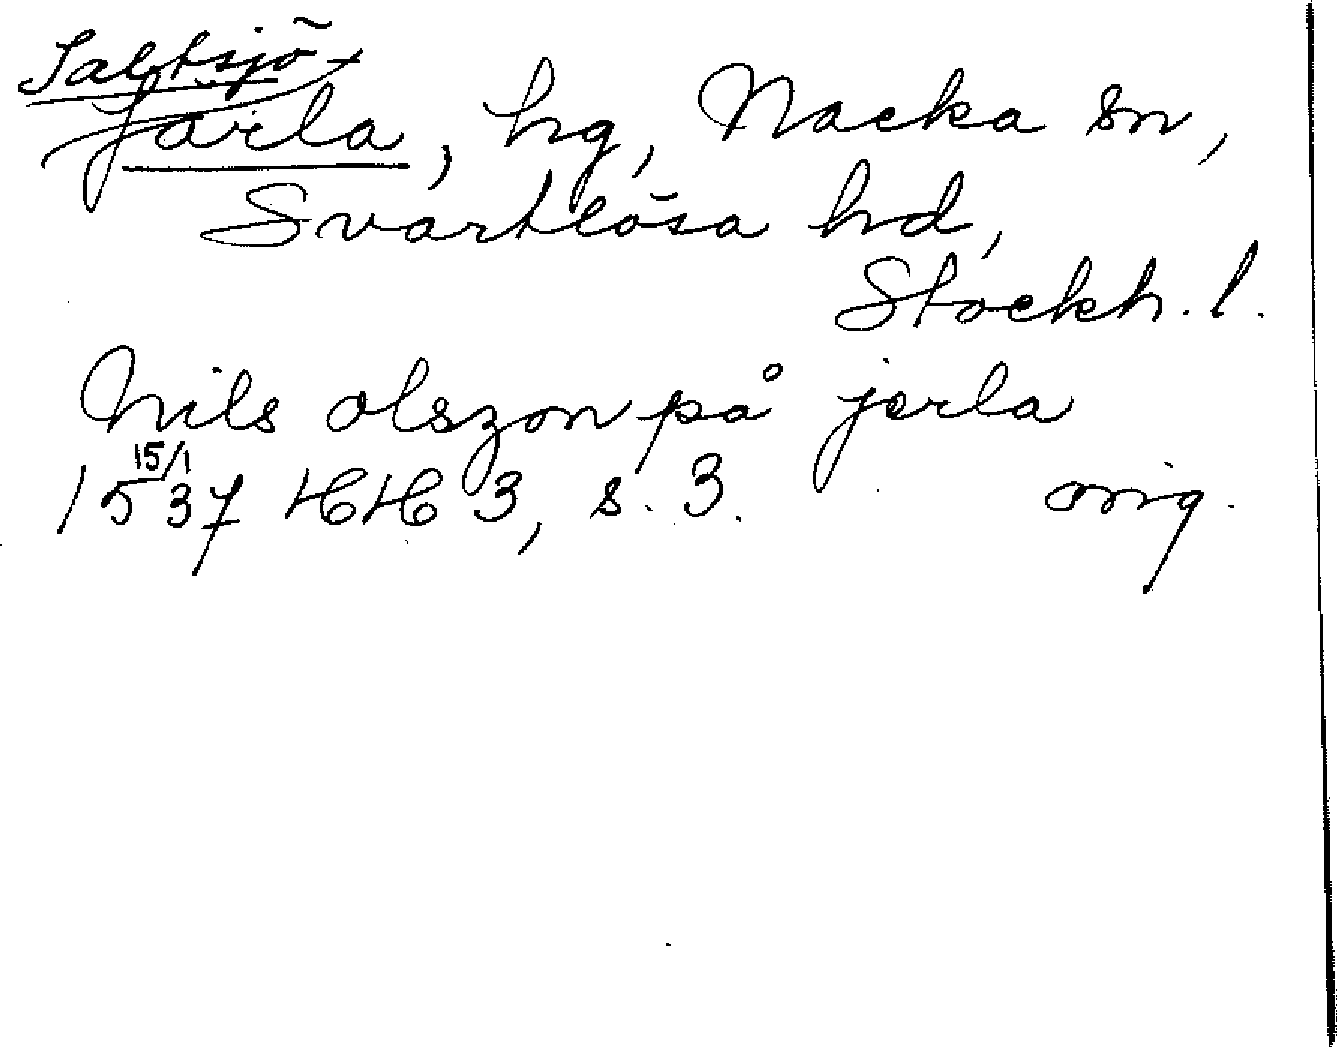 Saltsjö-
Järla, hg, Nacka sn,
Svartlösa hd,
Stockh. l.
Nils olszon på jerla
15/1
1537 HH 3, s. 3. orig.